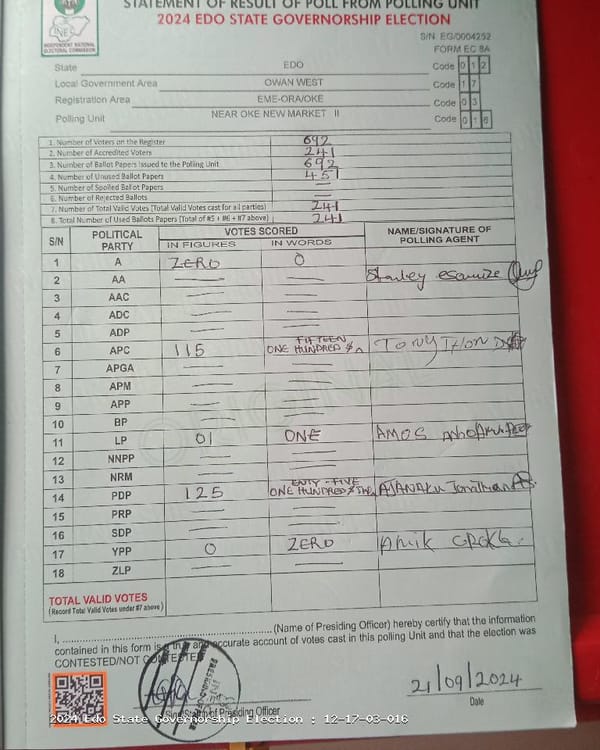 STATEMENT OF RESULT OF POLL FROM POLLING UNIT
2024 EDO STATE GOVERNORSHIP ELECTION
INDEPENDENT NATIONAL ELECTORAL COMMISSION
S/N EG/0004252
FORM EC 8A
State EDO Code 0 1 2
Local Government Area OWAN WEST Code 1 7
Registration Area EME-ORA/OKE Code 0 3
Polling Unit NEAR OKE NEW MARKET II Code 0 1 6
1. Number of Voters on the Register 692
2. Number of Accredited Voters 241
3. Number of Ballot Papers Issued to the Polling Unit 692
4. Number of Unused Ballot Papers 451
5. Number of Spoiled Ballot Papers —
6. Number of Rejected Ballots —
7. Number of Total Valid Votes (Total Valid Votes cast for all parties) 241
8. Total Number of Used Ballots Papers (Total of #5 + #6 + #7 above) 241
S/N POLITICAL PARTY VOTES SCORED NAME/SIGNATURE OF POLLING AGENT
IN FIGURES IN WORDS
1 A ZERO 0
2 AA — — Stanley
3 AAC — —
4 ADC — —
5 ADP — —
6 APC 115 ONE HUNDRED & FIFTEEN TONY
7 APGA — —
8 APM — —
9 APP — —
10 BP — —
11 LP 01 ONE AMOS
12 NNPP — —
13 NRM — —
14 PDP 125 ONE HUNDRED & AJANAKU Jonathan
15 PRP — —
16 SDP — —
17 YPP 0 ZERO
18 ZLP — —
TOTAL VALID VOTES
(Record Total Valid Votes under #7 above)
I, ...(Name of Presiding Officer) hereby certify that the information
contained in this form is a true and accurate account of votes cast in this polling Unit and that the election was
CONTESTED/NOT CONTESTED
21/09/2024
Presiding Officer Date
2024 Edo State Governorship Election : 12-17-03-016